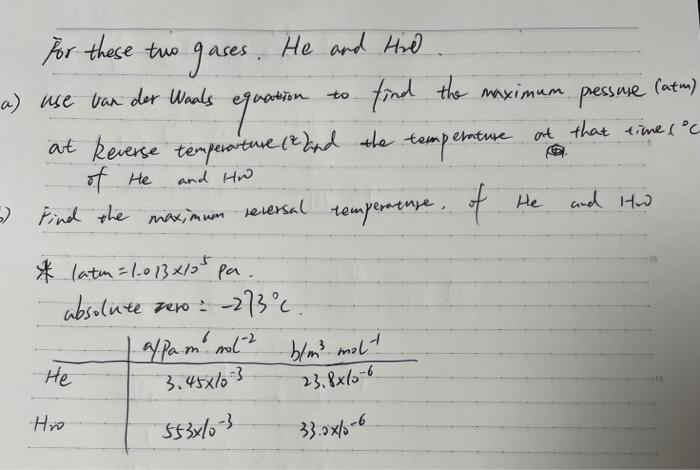 For these two gases. He and H₂O.
a) use van der Waals equation to find the maximum pressure (atm)
at Reverse temperature (℃) and the temperature at that time (℃
of He and H₂O
) Find the maximum reversal temperature. of He and H₂O
* 1atm = 1.013×10⁵ Pa.
absolute zero : -273°C.
a/Pa m⁶ mol⁻² b/m³ mol⁻¹
He 3.45×10⁻³ 23.8×10⁻⁶
H₂O 553×10⁻³ 33.0×10⁻⁶